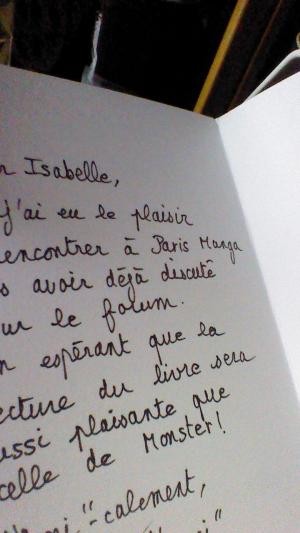 Isabelle,
j'ai eu le plaisir
rencontrer à Paris Manga
avoir déjà discuté
le forum.
espérant que la
lecture du livre sera
aussi plaisante que
celle de Monster!
"-calement,